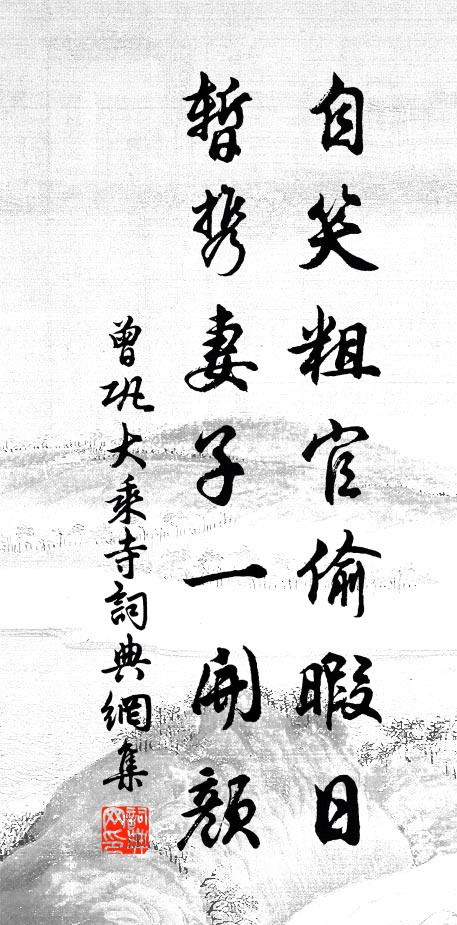 自笑粗官偷暇日
暫携妻子一開顏
曾巩大乘寺詞典網集